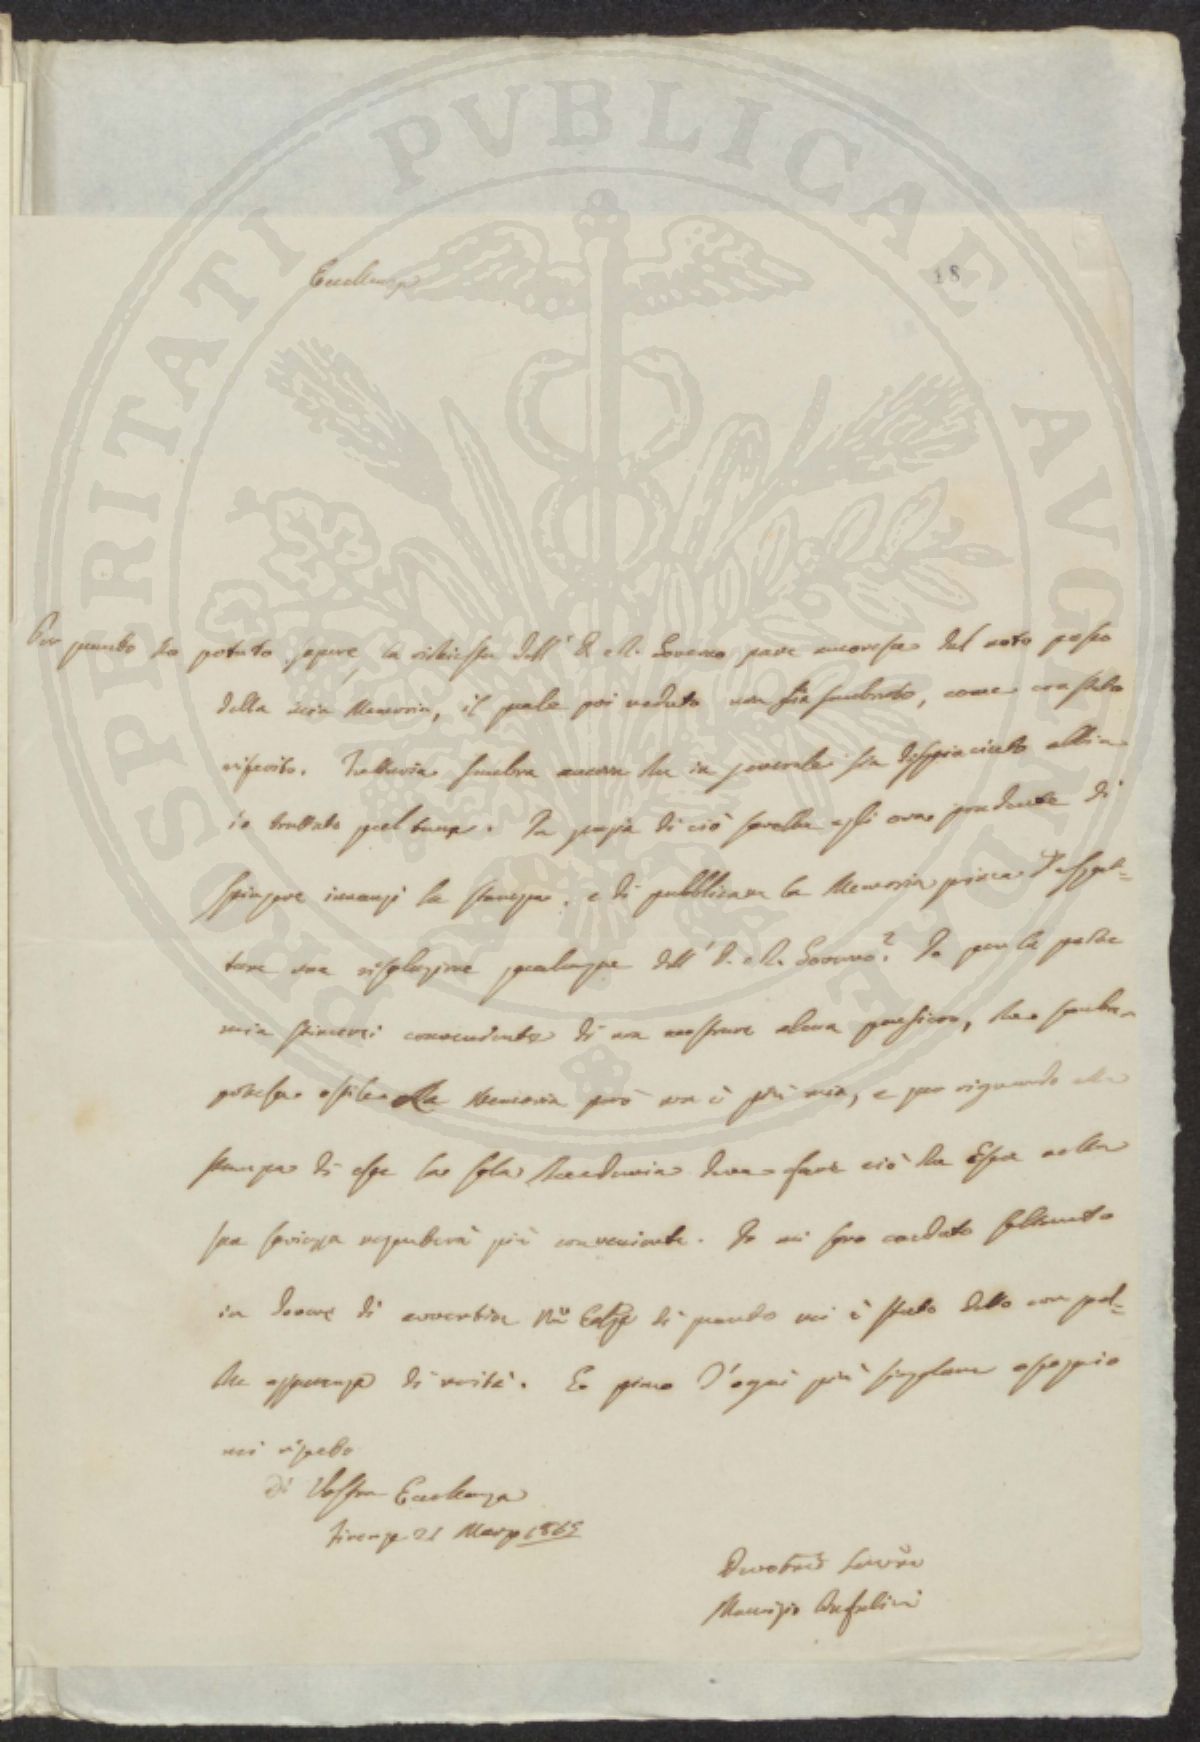 PROSPERITATI PVBLICAE AVGENDAE
Eccellenza
18
Per quanto ho potuto sapere, la richiesta dell' I. e R. Governo pare muovesse dal noto passo
della mia Memoria, il quale poi veduto non sia sembrato, come era stato
riferito. Tuttavia sembra ancora che in generale sia dispiaciuto abbia
io trattato quel tema. In grazia di ciò sarebbe egli ora prudente di
spingere innanzi la stampa, e di pubblicare la Memoria prima d'aspet=
tare una risoluzione qualunque dell' I. e R. Governo? Io per la parte
mia stimerei conveniente di non mostrare alcuna pressione, che sembrar
potesse ostile. La Memoria però non è più mia, e per riguardo alla
stampa di essa la sola Accademia deve fare ciò che Essa nella
sua saviezza reputerà più conveniente. Io mi sono creduto soltanto
in dovere di avvertire di quanto mi è stato detto con qual=
che apparenza di verità. E pieno d'ogni più singolare ossequio
mi ripeto
Di Vostra Eccellenza
Firenze 21 Marzo 1865
Maurizio Bufalini